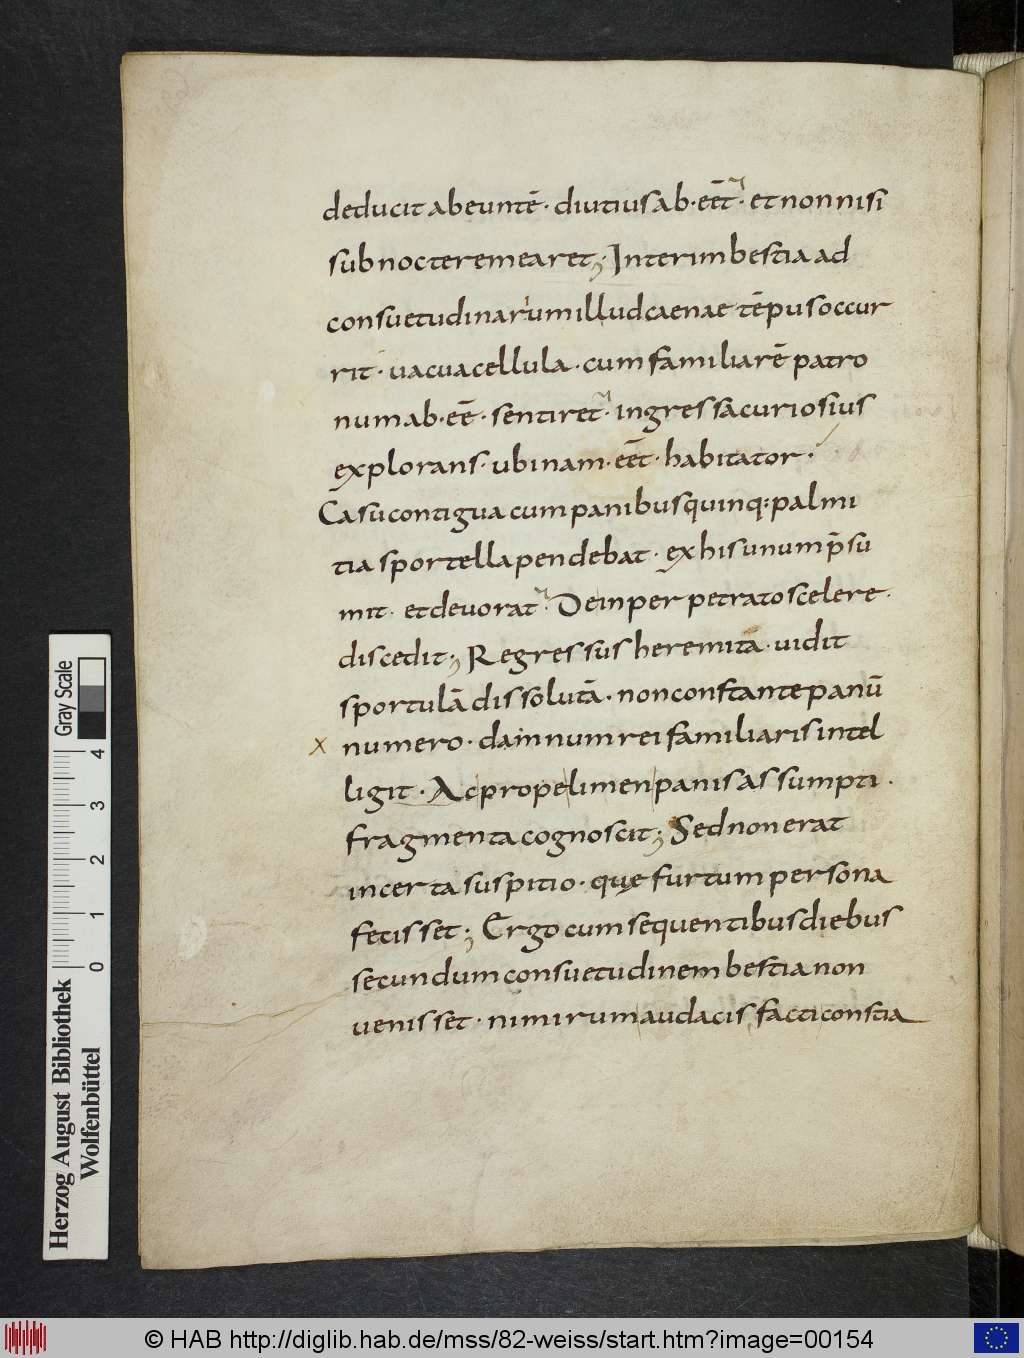 deducit abeuntē · diutius ab · eēt · et non nisi
sub nocte remearet ; Interim bestia ad
consuetudinarium illud caenae tēpus occur
rit · uacua cellula · cum familiarē patro
num ab · eē · sentiret · ingressa curiosius
explorans · ubinam · eēt · habitator ·
Casu contigua cum panibus quinq: palmi
tia sportella pendebat · ex his unum p̄su
mit · et deuorat · Dein perpetrato scelere ·
discedit ; Regressus heremita · uidit
sportulā dissolutā · non constante panū
x numero · damnum rei familiaris intel
ligit · Ac prope limen panis assumpti ·
fragmenta cognoscit ; Sed non erat
incerta suspitio · quę furtum persona
fecisset ; Ergo cum sequentibus diebus
secundum consuetudinem bestia non
uenisset · nimirum audacis facti constia
Gray Scale
4 3 2 1 0
Herzog August Bibliothek
Wolfenbüttel
© HAB http://diglib.hab.de/mss/82-weiss/start.htm?image=00154